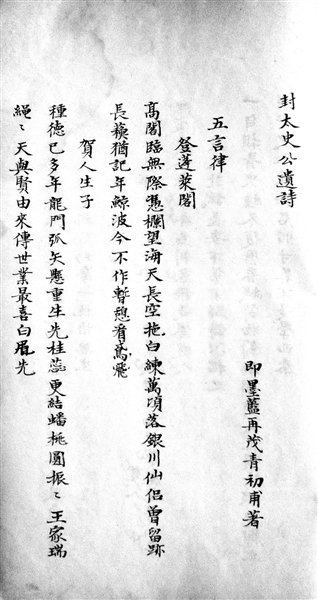 封太史公遺詩
即墨藍再茂青初甫著
五言律
登蓬萊閣
髙閣臨無際憑欄望海天長空拖白練萬頃落銀川仙侣曾留跡
長猶記年鯨波今不作暫憩看鳶飛
賀人生子
種德已多年龍門弧矢懸重生先桂蕊更結蟠桃圓振〻王家瑞
繩〻天與賢由來傳世業最喜白眉先